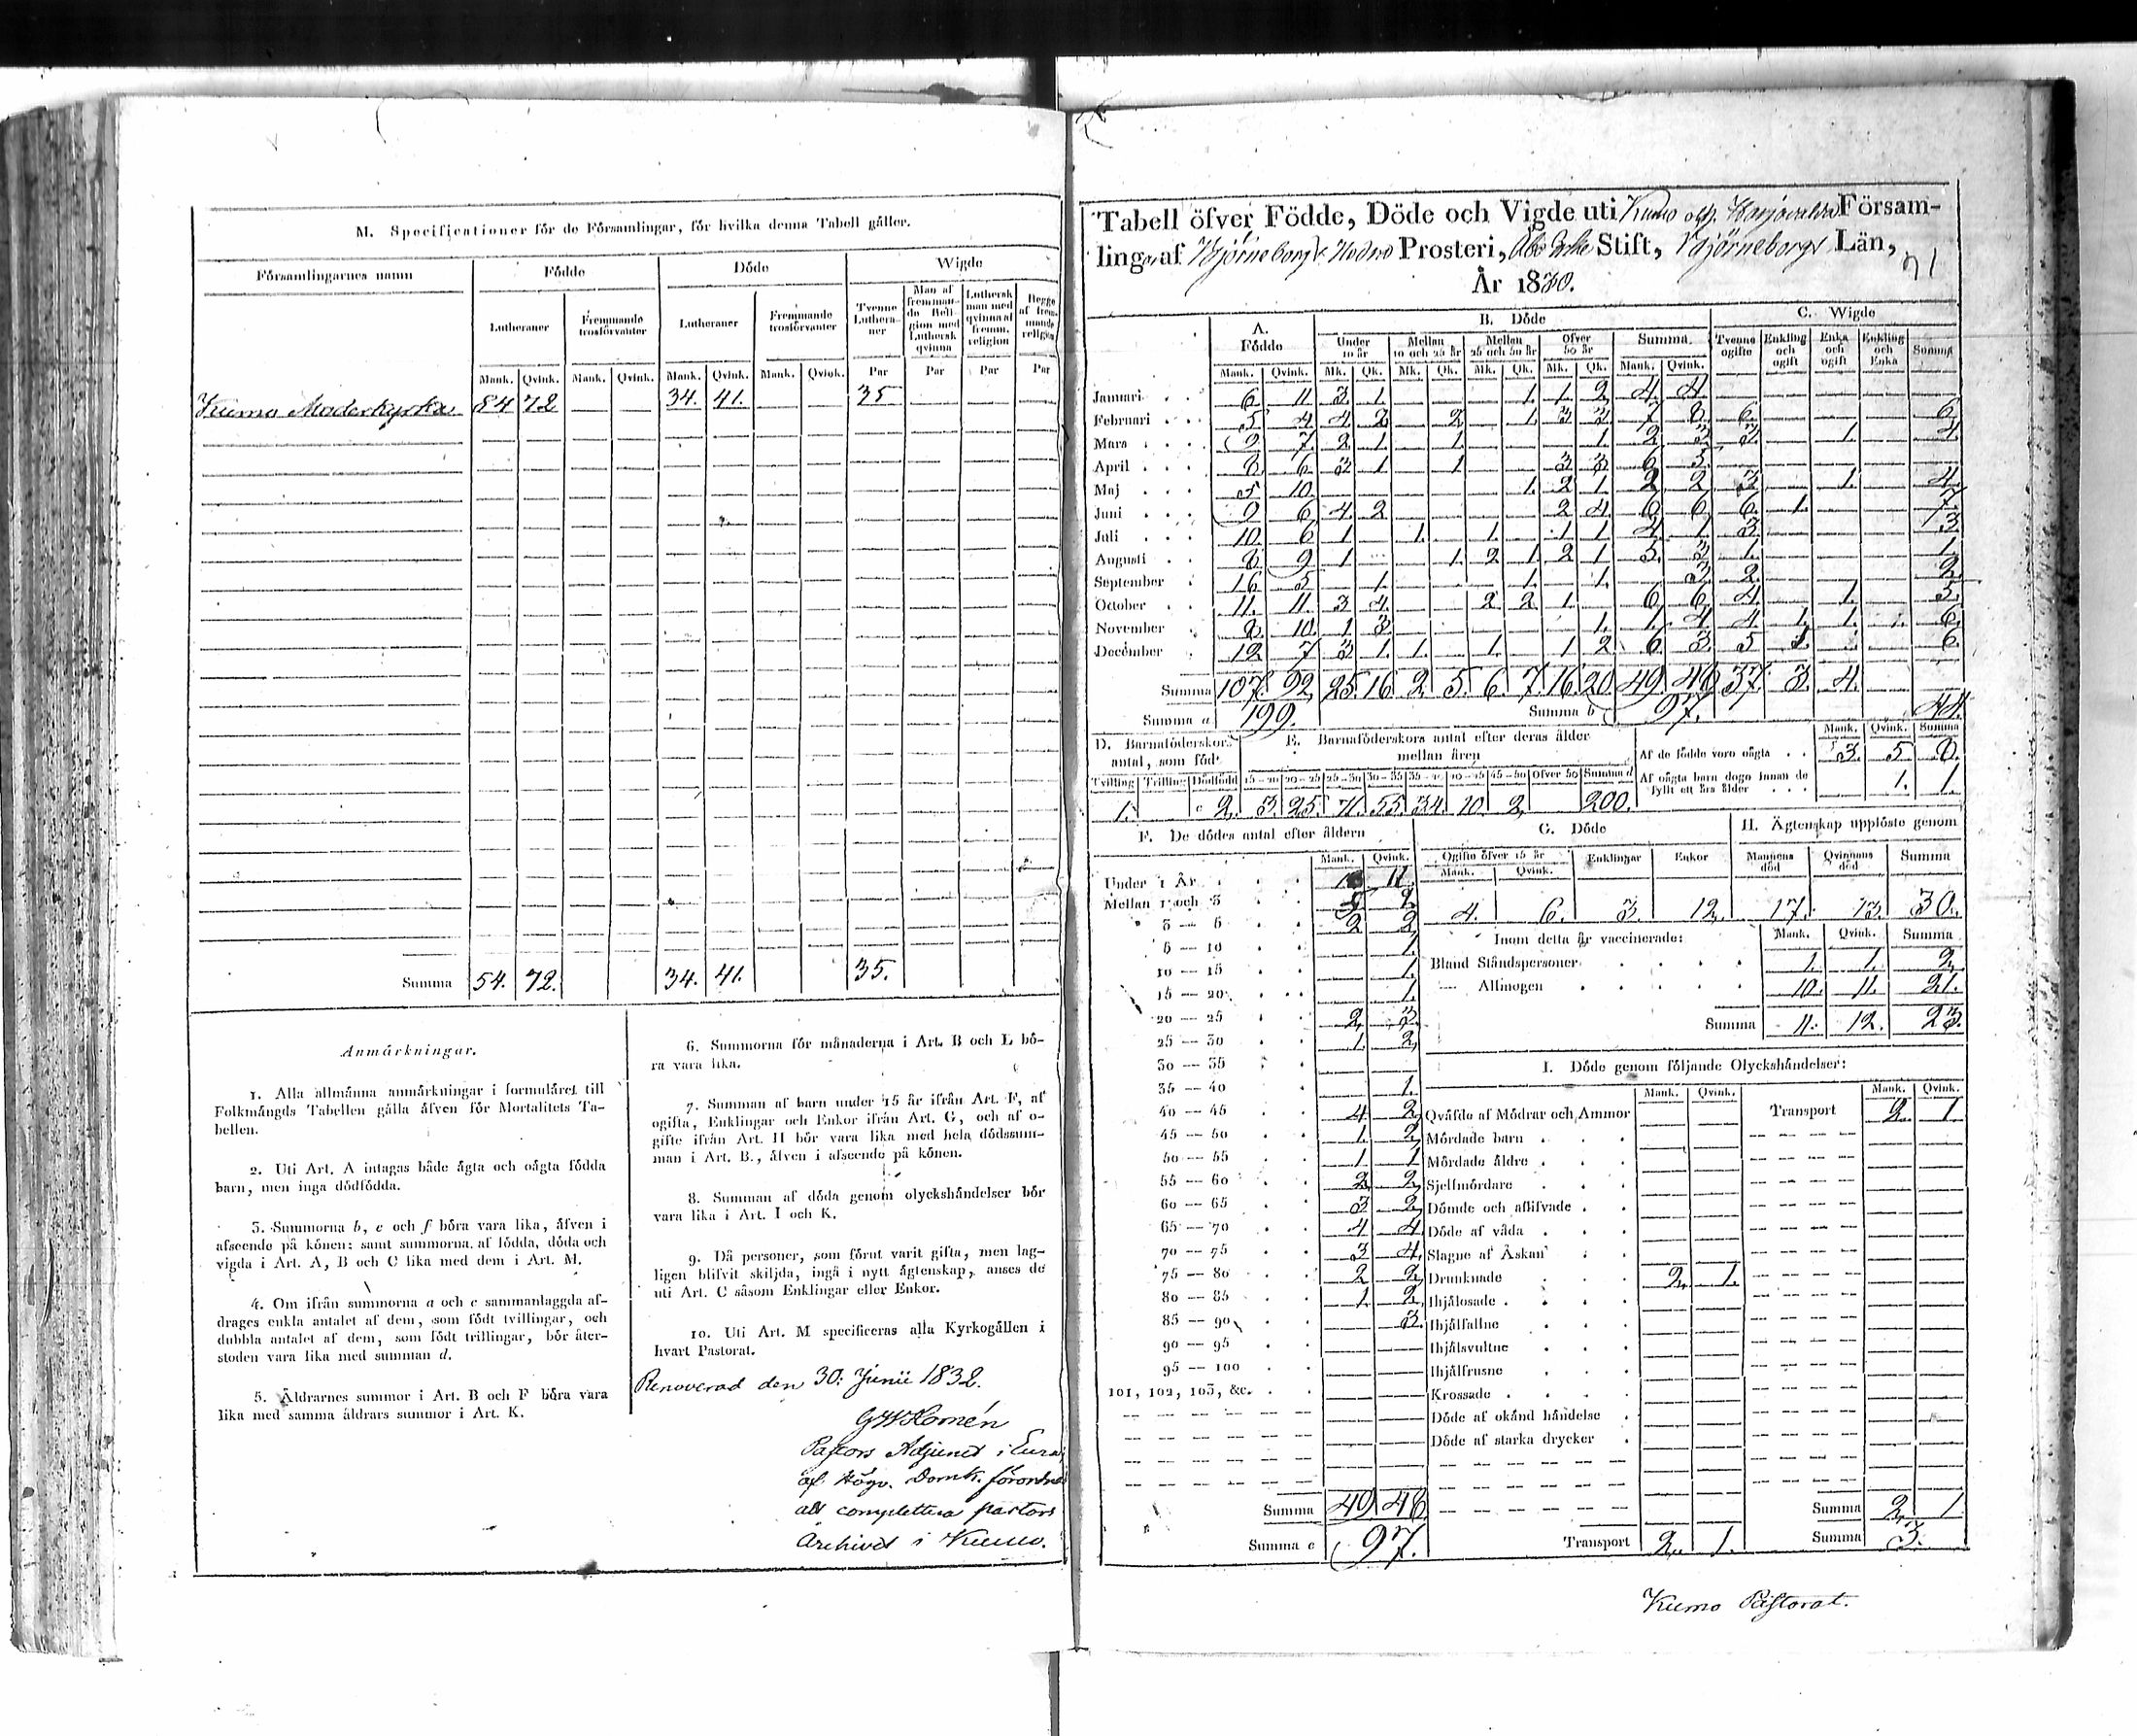 M. Specificationer för de Församlingar, för hvilka denna Tabell gäller.
Församlingarnes namn Födde Döde Wigde
Lutheraner Fremmande trosförvanter Lutheraner Fremmande trosförvanter Tvenne Lutheraner Man af fremmande Religion med Luthersk qvinna Luthersk man med qvinna af fremm. religion Begge af fremmande religion
Mank. Qvink. Mank. Qvink. Mank. Qvink. Mank. Qvink. Par Par Par Par
Kumo Moderkyrka 54 72 34. 41. 35
Summa 54. 72. 34. 41. 35.
Anmärkningar.
1. Alla allmänna anmärkningar i formuläret till
Folkmängds Tabellen gälla äfven för Mortalitets Ta-
bellen.
2. Uti Art. A intagas både ägta och oägta födda
barn, men inga dödfödda.
3. Summorna b, e och f böra vara lika, äfven i
afseende på könen; samt summorna af födda, döda och
vigda i Art. A, B och C lika med dem i Art. M.
4. Om ifrån summorna a och c sammanlaggda af-
drages enkla antalet af dem, som födt tvillingar, och
dubbla antalet af dem, som födt trillingar, bör åter-
stoden vara lika med summan d.
5. Åldrarnes summor i Art. B och F böra vara
lika med samma åldrars summor i Art. K.
6. Summorna för månaderna i Art. B och L bö-
ra vara lika.
7. Summan af barn under 15 år ifrån Art. F, af
ogifta, Enklingar och Enkor ifrån Art. G, och af o-
gifte ifrån Art. H bör vara lika med hela dödssum-
man i Art. B., äfven i afseende på könen.
8. Summan af döda genom olyckshändelser bör
vara lika i Art. I och K.
9. Då personer, som förut varit gifta, men lag-
ligen blifvit skiljda, ingå i nytt ägtenskap, anses de
uti Art. C såsom Enklingar eller Enkor.
10. Uti Art. M specificeras alla Kyrkogällen i
hvart Pastorat.
Renoverad den 30: Junii 1832.
Pastors Adjunct i Eura,
af Högv. Domk. förordnad
att complettera pastors
Archivet i Kumo.
Tabell öfver Födde, Döde och Vigde uti Kumo och Harjavalda Försam-
ling af Björneborgs Nedre Prosteri, Åbo Erke Stift, Björneborgs Län,
År 1830.
A. Födde B. Döde C. Wigde
Under 10 år Mellan 10 och 25 år Mellan 25 och 50 år Öfver 50 år Summa Tvenne ogifte Enkling och ogift Enka och ogift Enkling och Enka Summa
Mank. Qvink. Mk. Qk. Mk. Qk. Mk. Qk. Mk. Qk. Mank. Qvink.
Januari 6 11 3 1 1 1 2 4 4
Februari 5 4 4 2 2 1 3 3 7 8 6 6
Mars 7 2 1 1 1 2 3 3 1 4
April 8 6 3 1 1 3 3 6 5
Maj 5 10 1 2 1 2 2 3 1 4
Juni 9 6 4 2 2 4 6 6 6 1 7
Juli 10 6 1 1 1 1 1 4 1 3 3
Augusti 8 9 1 1 2 1 2 1 5 3 1 1
September 16 5 1 1 1 3 2 2
October 11 11 3 4 2 2 1 6 6 4 1 5
November 10 1 3 1 1 4 4 1 1 6
December 12 7 3 1 1 1 1 2 6 3 5 1 6
Summa 107. 92 25. 16 2. 5. 6 7. 16 20 49 48 37. 3. 4.
Summa a 199. Summa b 97. 44.
D. Barnaföderskors antal, som födt E. Barnaföderskors antal efter deras ålder mellan åren
Tvilling Trilling Dödfödd 15-20 20-25 25-30 30-35 35-40 40-45 45-50 Öfver 50 Summa d
1. c 2. 3. 25. 71. 55. 34. 10. 2. 200.
Mank. Qvink. Summa
Af de födde voro oägta 3. 5. 8.
Af oägta barn dogo innan de fyllt ett års ålder 1. 1.
F. De dödas antal efter åldern
Mank. Qvink.
Under 1 År 11
Mellan 1 och 3 2
3 — 5 2 2
5 — 10 1.
10 — 15 1.
15 — 20 1.
20 — 25 2 3
25 — 30 1. 2
30 — 35
35 — 40 1.
40 — 45 4 2
45 — 50 1. 2
50 — 55 1 1
55 — 60 2 2
60 — 65 3 2
65 — 70 4 4
70 — 75 3 4
75 — 80 2 2
80 — 85 1 2
85 — 90 3.
90 — 95
95 — 100
101, 102, 103, &c.
Summa 49 48
Summa e 97.
G. Döde
Ogifte öfver 15 år Enklingar Enkor
Mank. Qvink.
4. 6. 3. 12.
H. Ägtenskap upplöste genom
Mannens död Qvinnans död Summa
17. 13. 30.
Inom detta år vaccinerade: Mank. Qvink. Summa
Bland Ståndspersoner 1. 1. 2
— Allmogen 10. 11. 21.
Summa 11. 12. 23.
I. Döde genom följande Olyckshändelser:
Mank. Qvink. Mank. Qvink.
Qväfde af Mödrar och Ammor Transport 2. 1
Mördade barn
Mördade äldre
Sjelfmördare
Dömde och aflifvade
Döde af våda
Slagne af Åskan
Drunknade 2. 1.
Ihjälosade
Ihjälfallne
Ihjälsvultne
Ihjälfrusne
Krossade
Döde af okänd händelse
Döde af starka drycker
Summa 2. 1
Transport 2. 1. Summa 3.
Kumo Pastorat.